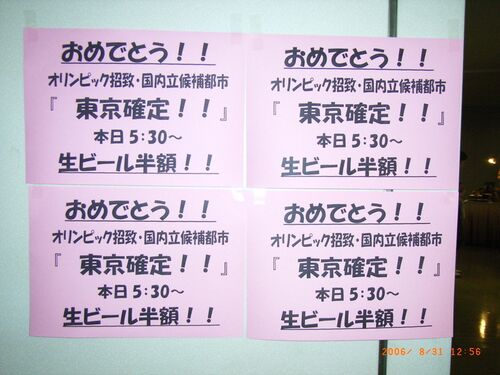 おめでとう！！
オリンピック招致・国内立候補都市
『 東京確定！！』
本日５：３０～
生ビール半額！！
おめでとう！！
オリンピック招致・国内立候補都市
『 東京確定！！』
本日５：３０～
生ビール半額！！
おめでとう！！
オリンピック招致・国内立候補都市
『 東京確定！！』
本日５：３０～
生ビール半額！！
おめでとう！！
オリンピック招致・国内立候補都市
『 東京確定！！』
本日５：３０～
生ビール半額！！
2006/ 8/31 12:56